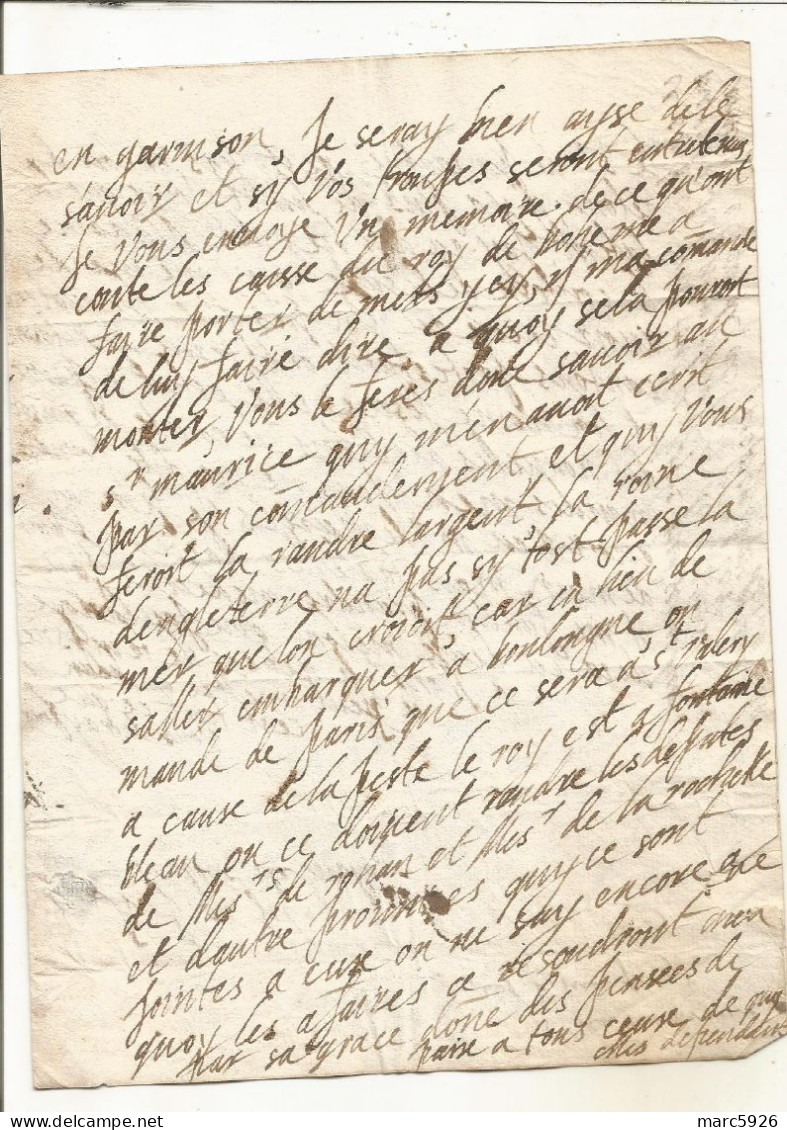 en garnison, Je seray bien ayse de le
sauoir et sy Vos troupes seront entretenu
Je Vous enuoye Vn memoire de ce qu'ont
coute les caisse du roy de boheme a
faire porter de mets ycy, yl ma comandé
de luy faire dire, a quoy sela pouroit
monter, Vous le feres dont sauoir au
sr maurice quy m'en auoit ecrit
par son comandement et quy Vous
feroit la randre largent, la roine
dengleterre na pas sy tost passe la
mer que lon croioit, car en lieu de
saller embarquer a boulongne, on
mande de paris que ce sera a st Valery
a cause de la peste le roy est a fontaine
bleau on ce doiuent randre les deputes
de Mesrs de rohan et Mesr de la rochelle
et dautre prouinces quy ce sont
jointes a eux on ne say encore que
quoy les afaires ce resoudront mon
par sa grace done des pensees de
paix a tous ceux de quy
elles dependent
marc5926